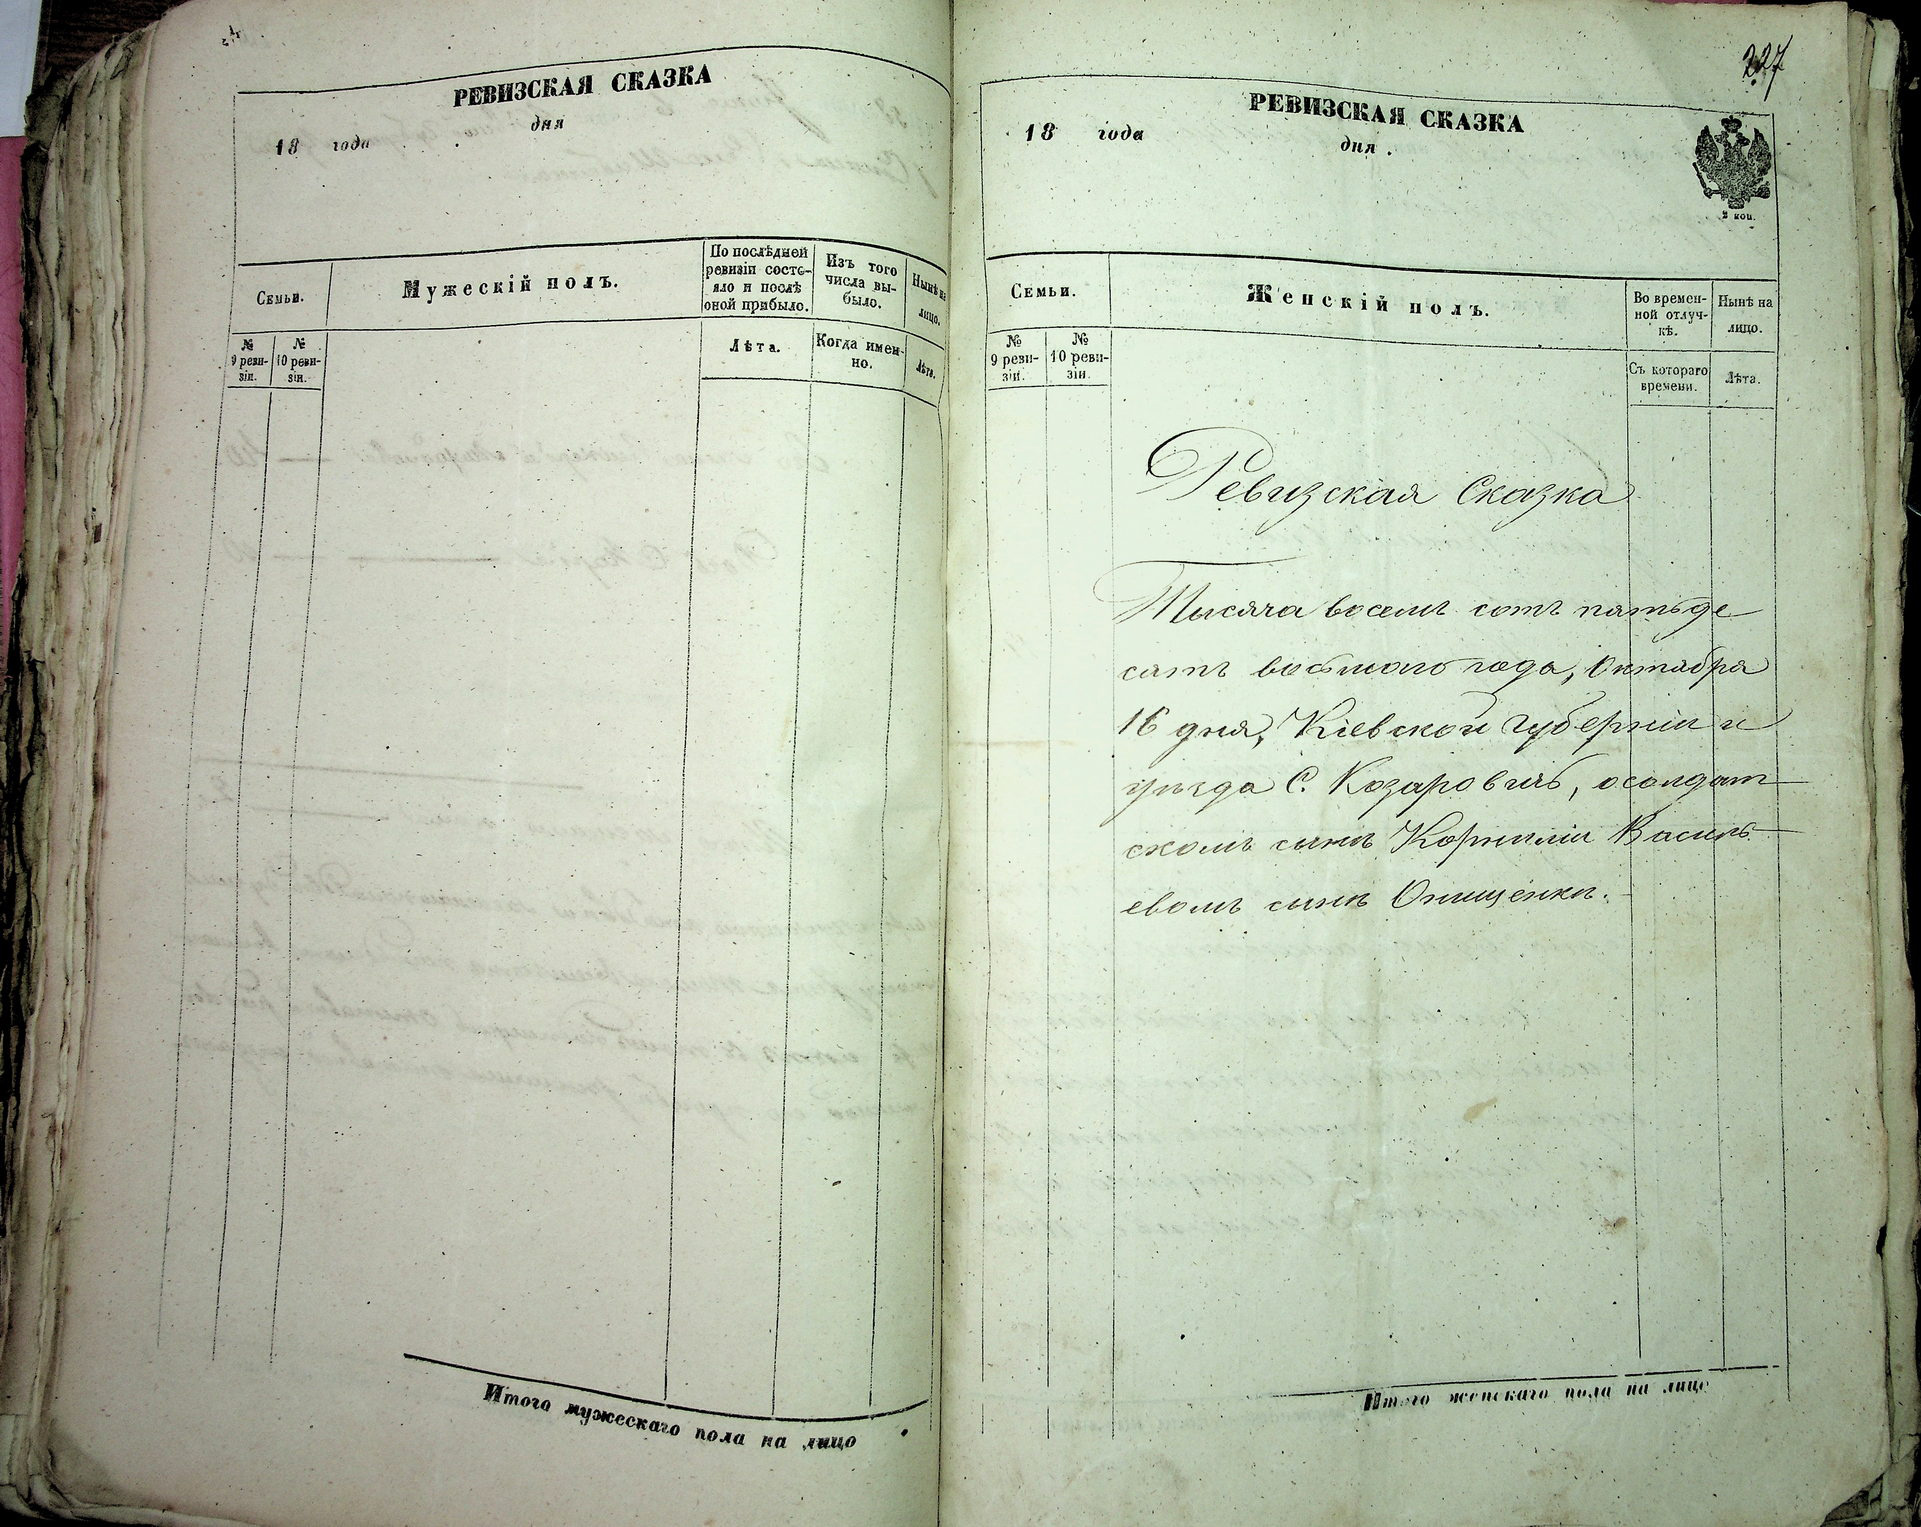 РЕВИЗСКАЯ СКАЗКА
18 года
дня
Семьи.
Мужескій полъ.
По послѣдней
ревизіи состо-
яло и послѣ
оной прибыло.
Изъ того
числа вы-
было.
Нынѣ на
лицо.
№
9 реви-
зіи.
№
10 реви-
зіи.
Лѣта.
Когда имен-
но.
Лѣта.
Итого мужескаго пола на лицо
227
РЕВИЗСКАЯ СКАЗКА
18 года
дня.
2 коп.
Семьи.
Женскій полъ.
Во времен-
ной отлуч-
кѣ.
Нынѣ на
лицо.
№
9 реви-
зіи.
№
10 реви-
зіи.
Съ котораго
времени.
Лѣта.
Ревизская Сказка
Тысяча восемъ сотъ пятьде
сятъ восьмого года, Октября
16 дня, Кіевской губерніи и
уѣзда С. Козаровичъ, о солдат
скомъ сынѣ Корниліи Василь
евомъ сынѣ Онищенкѣ.
Итого женскаго пола на лицо